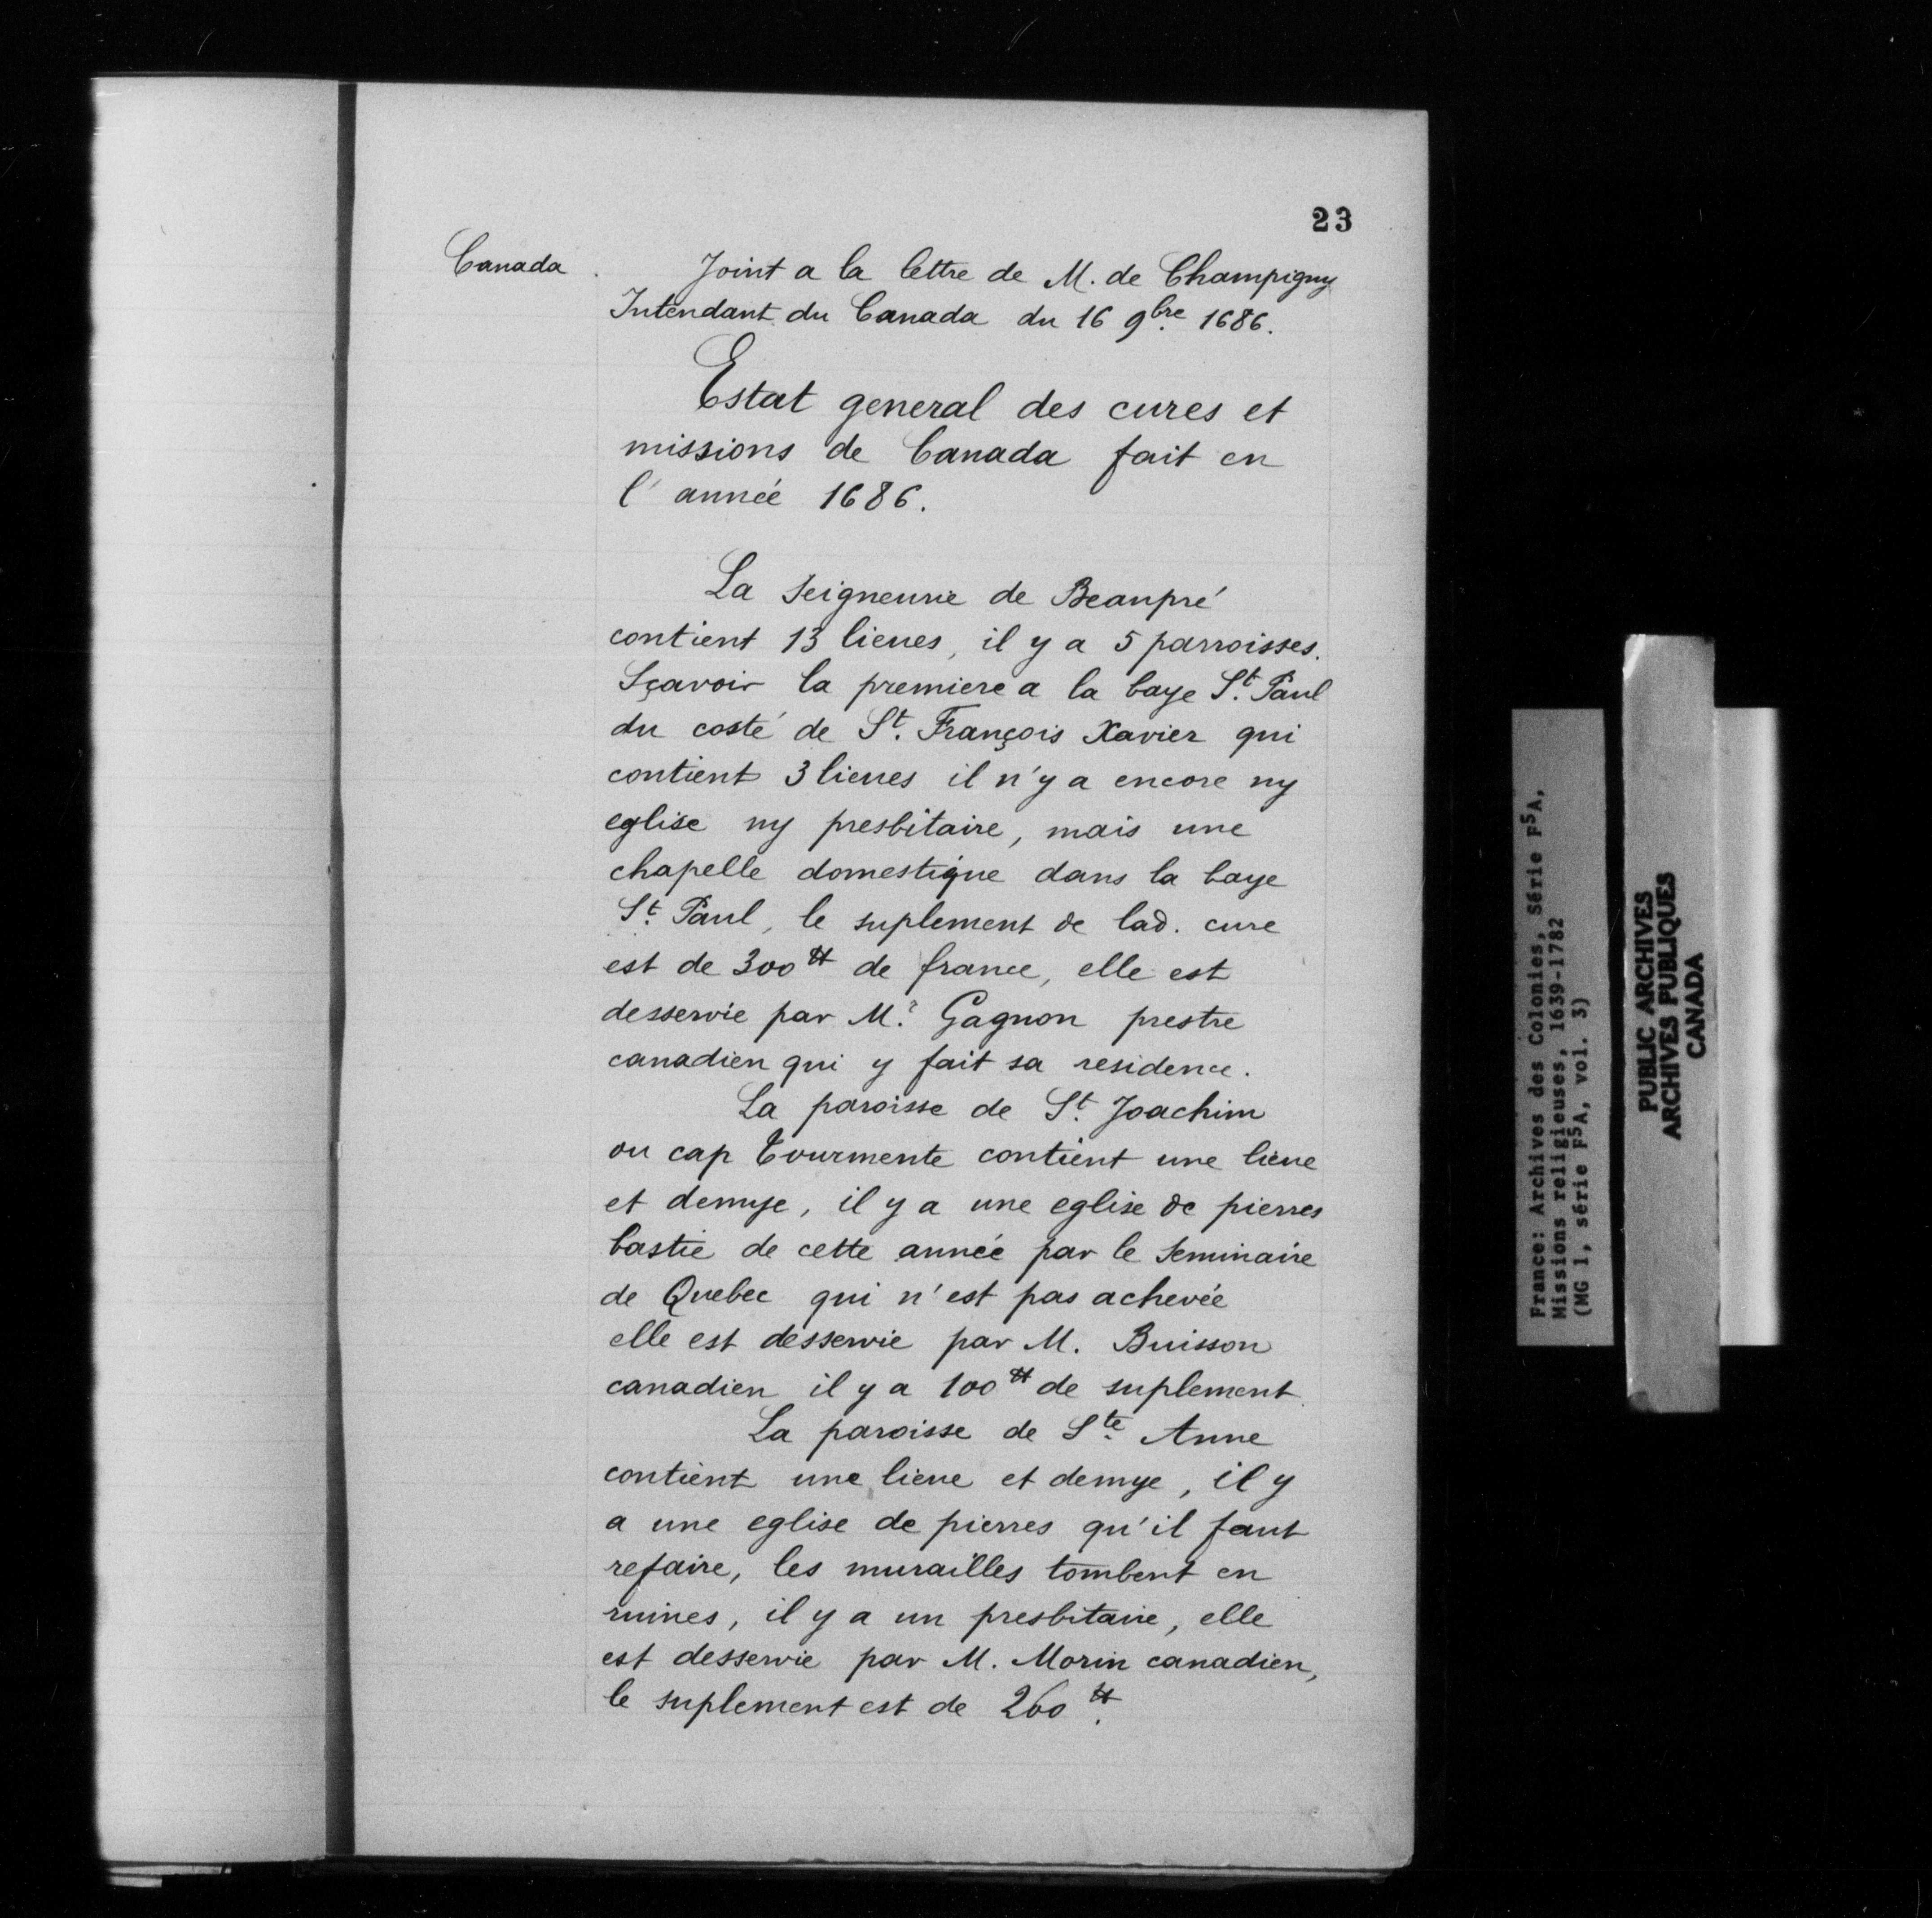 23
Canada
Joint a la lettre de M. de Champigny
Intendant du Canada du 16 9bre 1686.
Estat general des cures et
missions de Canada fait en
l'année 1686.
La Seigneurie de Beaupré
contient 13 lieues, il y a 5 parroisses.
Sçavoir la premiere a la baye St. Paul
du costé de St. François Xavier qui
contient 3 lieues il n'y a encore ny
eglise ny presbitaire, mais une
chapelle domestique dans la baye
St. Paul, le suplement de lad. cure
est de 300tt de france, elle est
desservie par Mr. Gagnon prestre
canadien qui y fait sa residence.
La paroisse de St. Joachim
ou cap Tourmente contient une lieue
et demye, il y a une eglise de pierres
bastie de cette année par le Seminaire
de Quebec qui n'est pas achevée
elle est desservie par M. Buisson
canadien il y a 100tt de suplement.
La paroisse de Ste. Anne
contient une lieue et demye, il y
a une eglise de pierres qu'il faut
refaire, les murailles tombent en
ruines, il y a un presbitaire, elle
est desservie par M. Morin canadien,
le suplement est de 260tt.
France: Archives des Colonies, Série F5A,
Missions religieuses, 1639-1782
(MG 1, série F5A, vol. 3)
PUBLIC ARCHIVES
ARCHIVES PUBLIQUES
CANADA